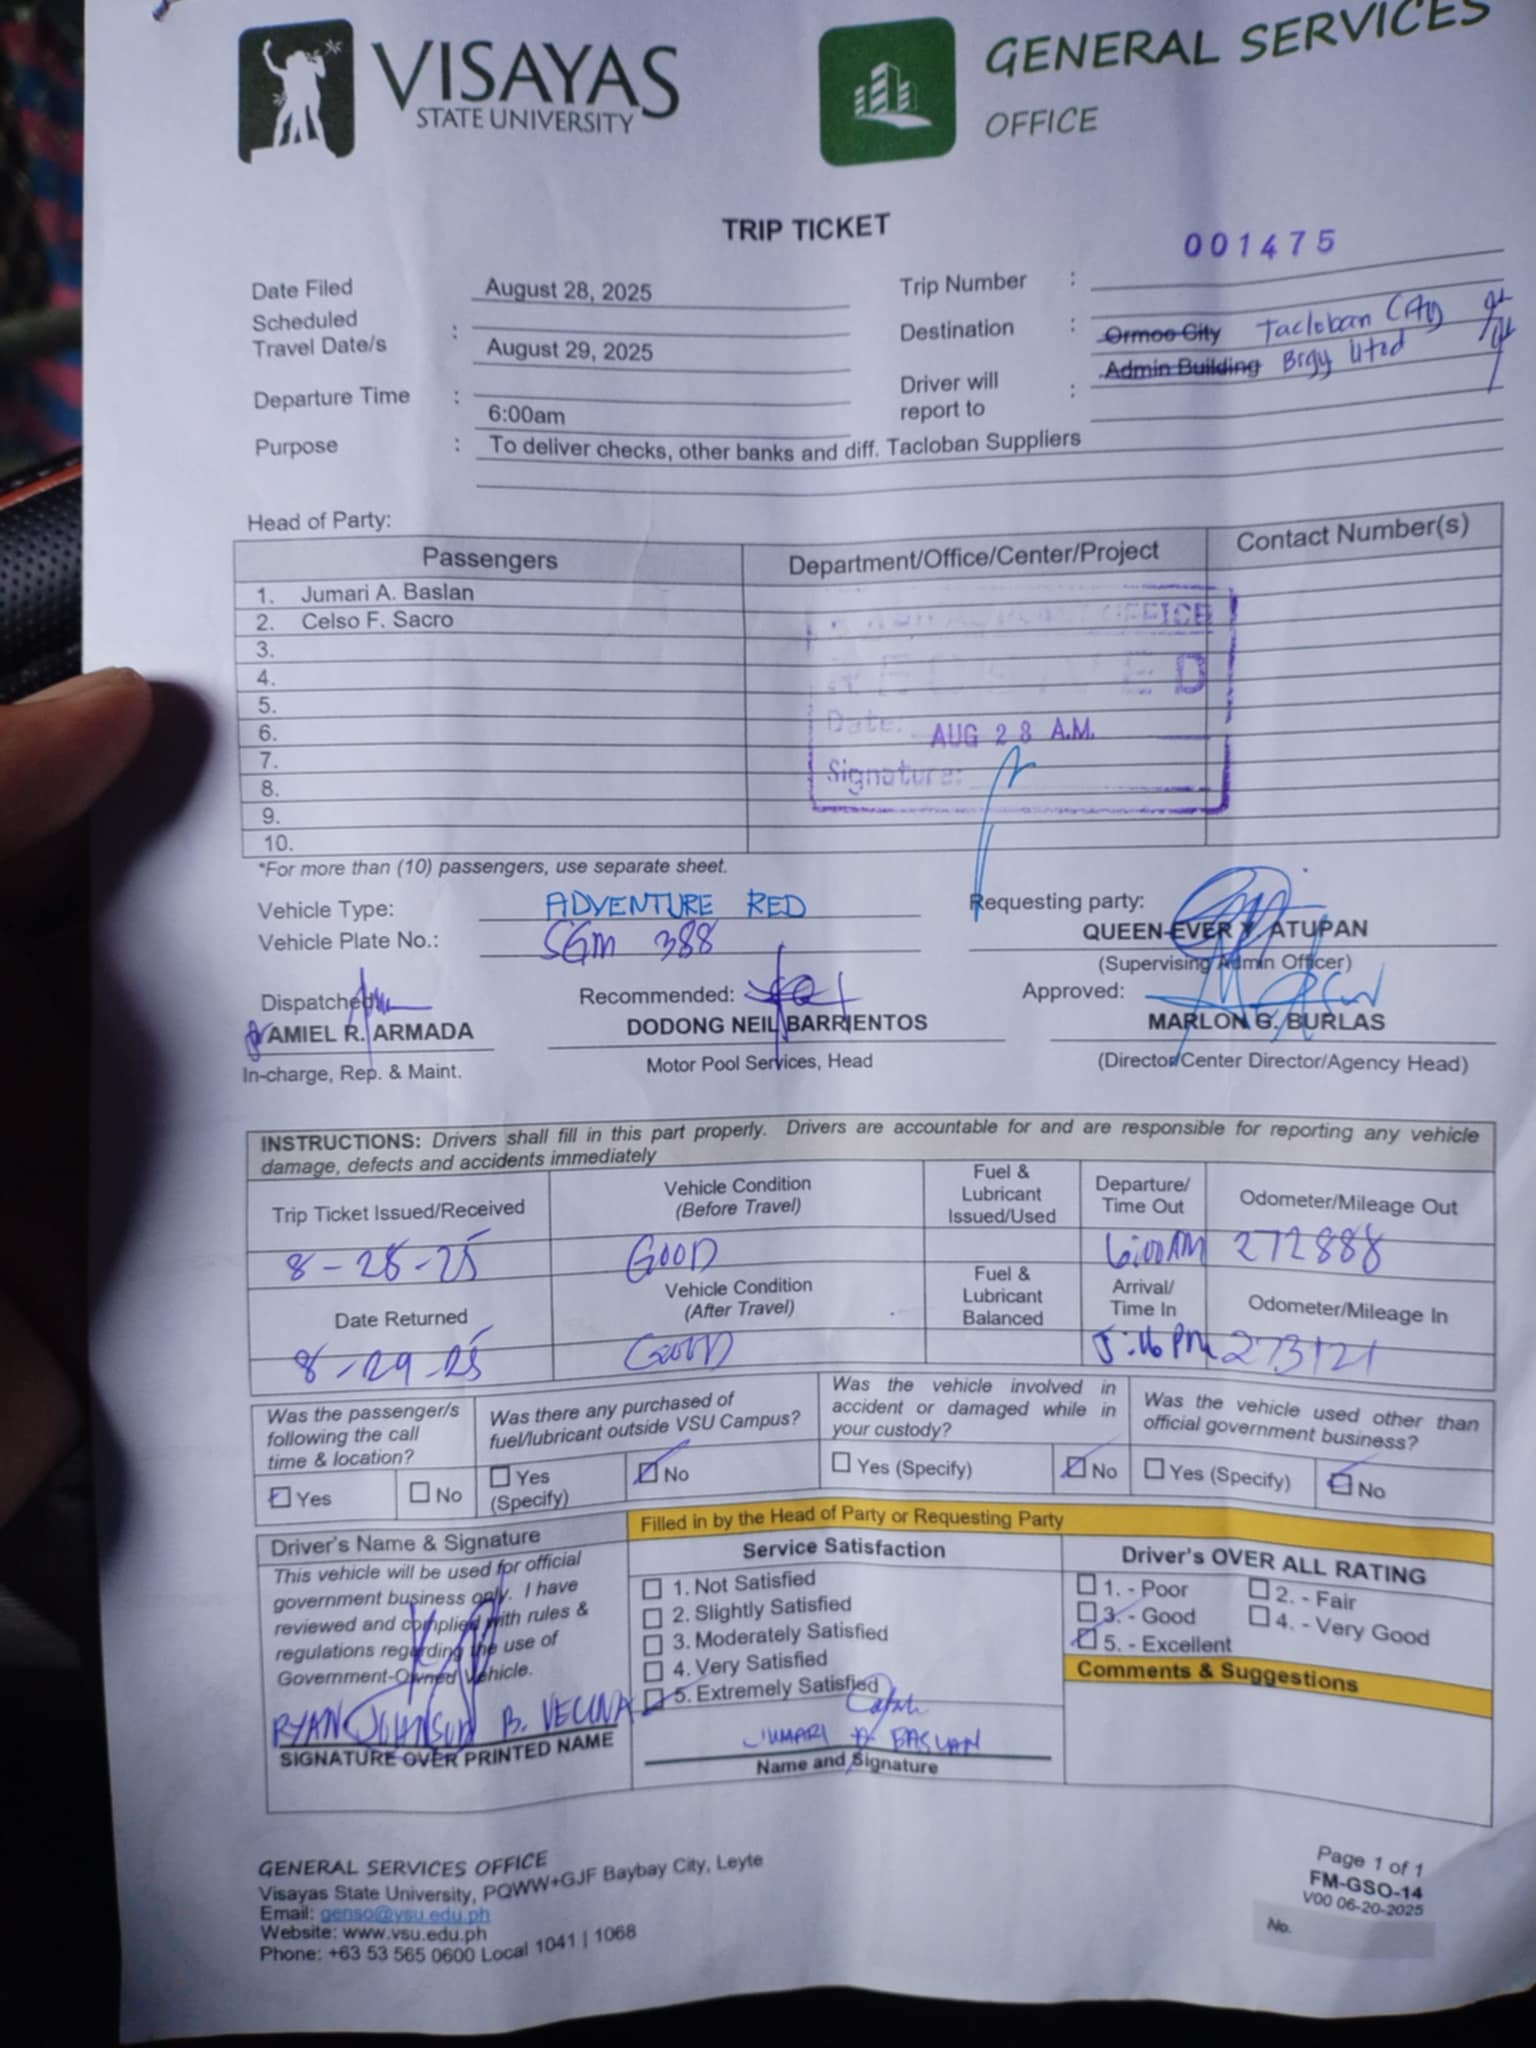 VISAYAS
STATE UNIVERSITY
GENERAL SERVICES
OFFICE
TRIP TICKET
001475
Date Filed August 28, 2025 Trip Number :
Scheduled Travel Date/s : August 29, 2025 Destination : Ormoc City Tacloban City
Admin Building Brgy Utod
Departure Time : 6:00am Driver will report to :
Purpose : To deliver checks, other banks and diff. Tacloban Suppliers
Head of Party:
Passengers Department/Office/Center/Project Contact Number(s)
1. Jumari A. Baslan
2. Celso F. Sacro
3.
4.
5.
6.
7.
8.
9.
10.
OFFICE
RECEIVED
Date: AUG 28 A.M.
Signature:
*For more than (10) passengers, use separate sheet.
Vehicle Type: ADVENTURE RED Requesting party:
Vehicle Plate No.: SGM 388 QUEEN-EVER Y. ATUPAN
(Supervising Admin Officer)
Dispatched Recommended: Approved:
AMIEL R. ARMADA DODONG NEIL BARRIENTOS MARLON G. BURLAS
In-charge, Rep. & Maint. Motor Pool Services, Head (Director/Center Director/Agency Head)
INSTRUCTIONS: Drivers shall fill in this part properly. Drivers are accountable for and are responsible for reporting any vehicle
damage, defects and accidents immediately
Trip Ticket Issued/Received Vehicle Condition (Before Travel) Fuel & Lubricant Issued/Used Departure/ Time Out Odometer/Mileage Out
8-28-25 GOOD 6:00AM 272888
Date Returned Vehicle Condition (After Travel) Fuel & Lubricant Balanced Arrival/ Time In Odometer/Mileage In
8-29-25 GOOD 5:16 PM 273121
Was the passenger/s following the call time & location?
Yes No
Was there any purchased of fuel/lubricant outside VSU Campus?
Yes (Specify) No
Was the vehicle involved in accident or damaged while in your custody?
Yes (Specify) No
Was the vehicle used other than official government business?
Yes (Specify) No
Driver's Name & Signature
This vehicle will be used for official
government business only. I have
reviewed and complied with rules &
regulations regarding the use of
Government-Owned Vehicle.
RYAN JOHNSON B. VECINA
SIGNATURE OVER PRINTED NAME
Filled in by the Head of Party or Requesting Party
Service Satisfaction
1. Not Satisfied
2. Slightly Satisfied
3. Moderately Satisfied
4. Very Satisfied
5. Extremely Satisfied
JUMARI A. BASLAN
Name and Signature
Driver's OVER ALL RATING
1. - Poor 2. - Fair
3. - Good 4. - Very Good
5. - Excellent
Comments & Suggestions
GENERAL SERVICES OFFICE
Visayas State University, PQWW+GJF Baybay City, Leyte
Email: genso@vsu.edu.ph
Website: www.vsu.edu.ph
Phone: +63 53 565 0600 Local 1041 | 1068
Page 1 of 1
FM-GSO-14
V00 06-20-2025
No.